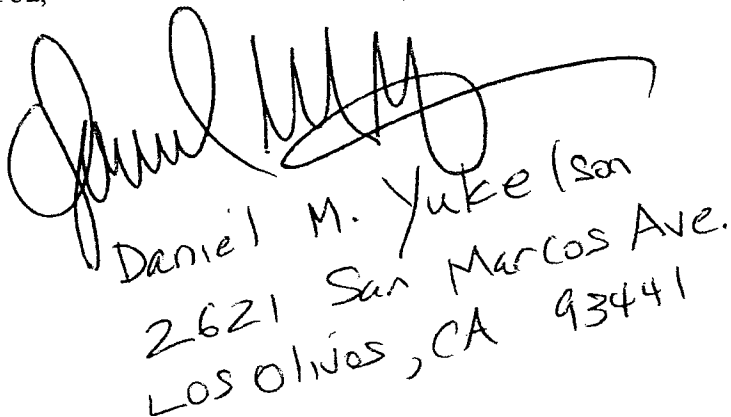 Daniel M. Yukelson
2621 San Marcos Ave.
Los Olivos, CA 93441